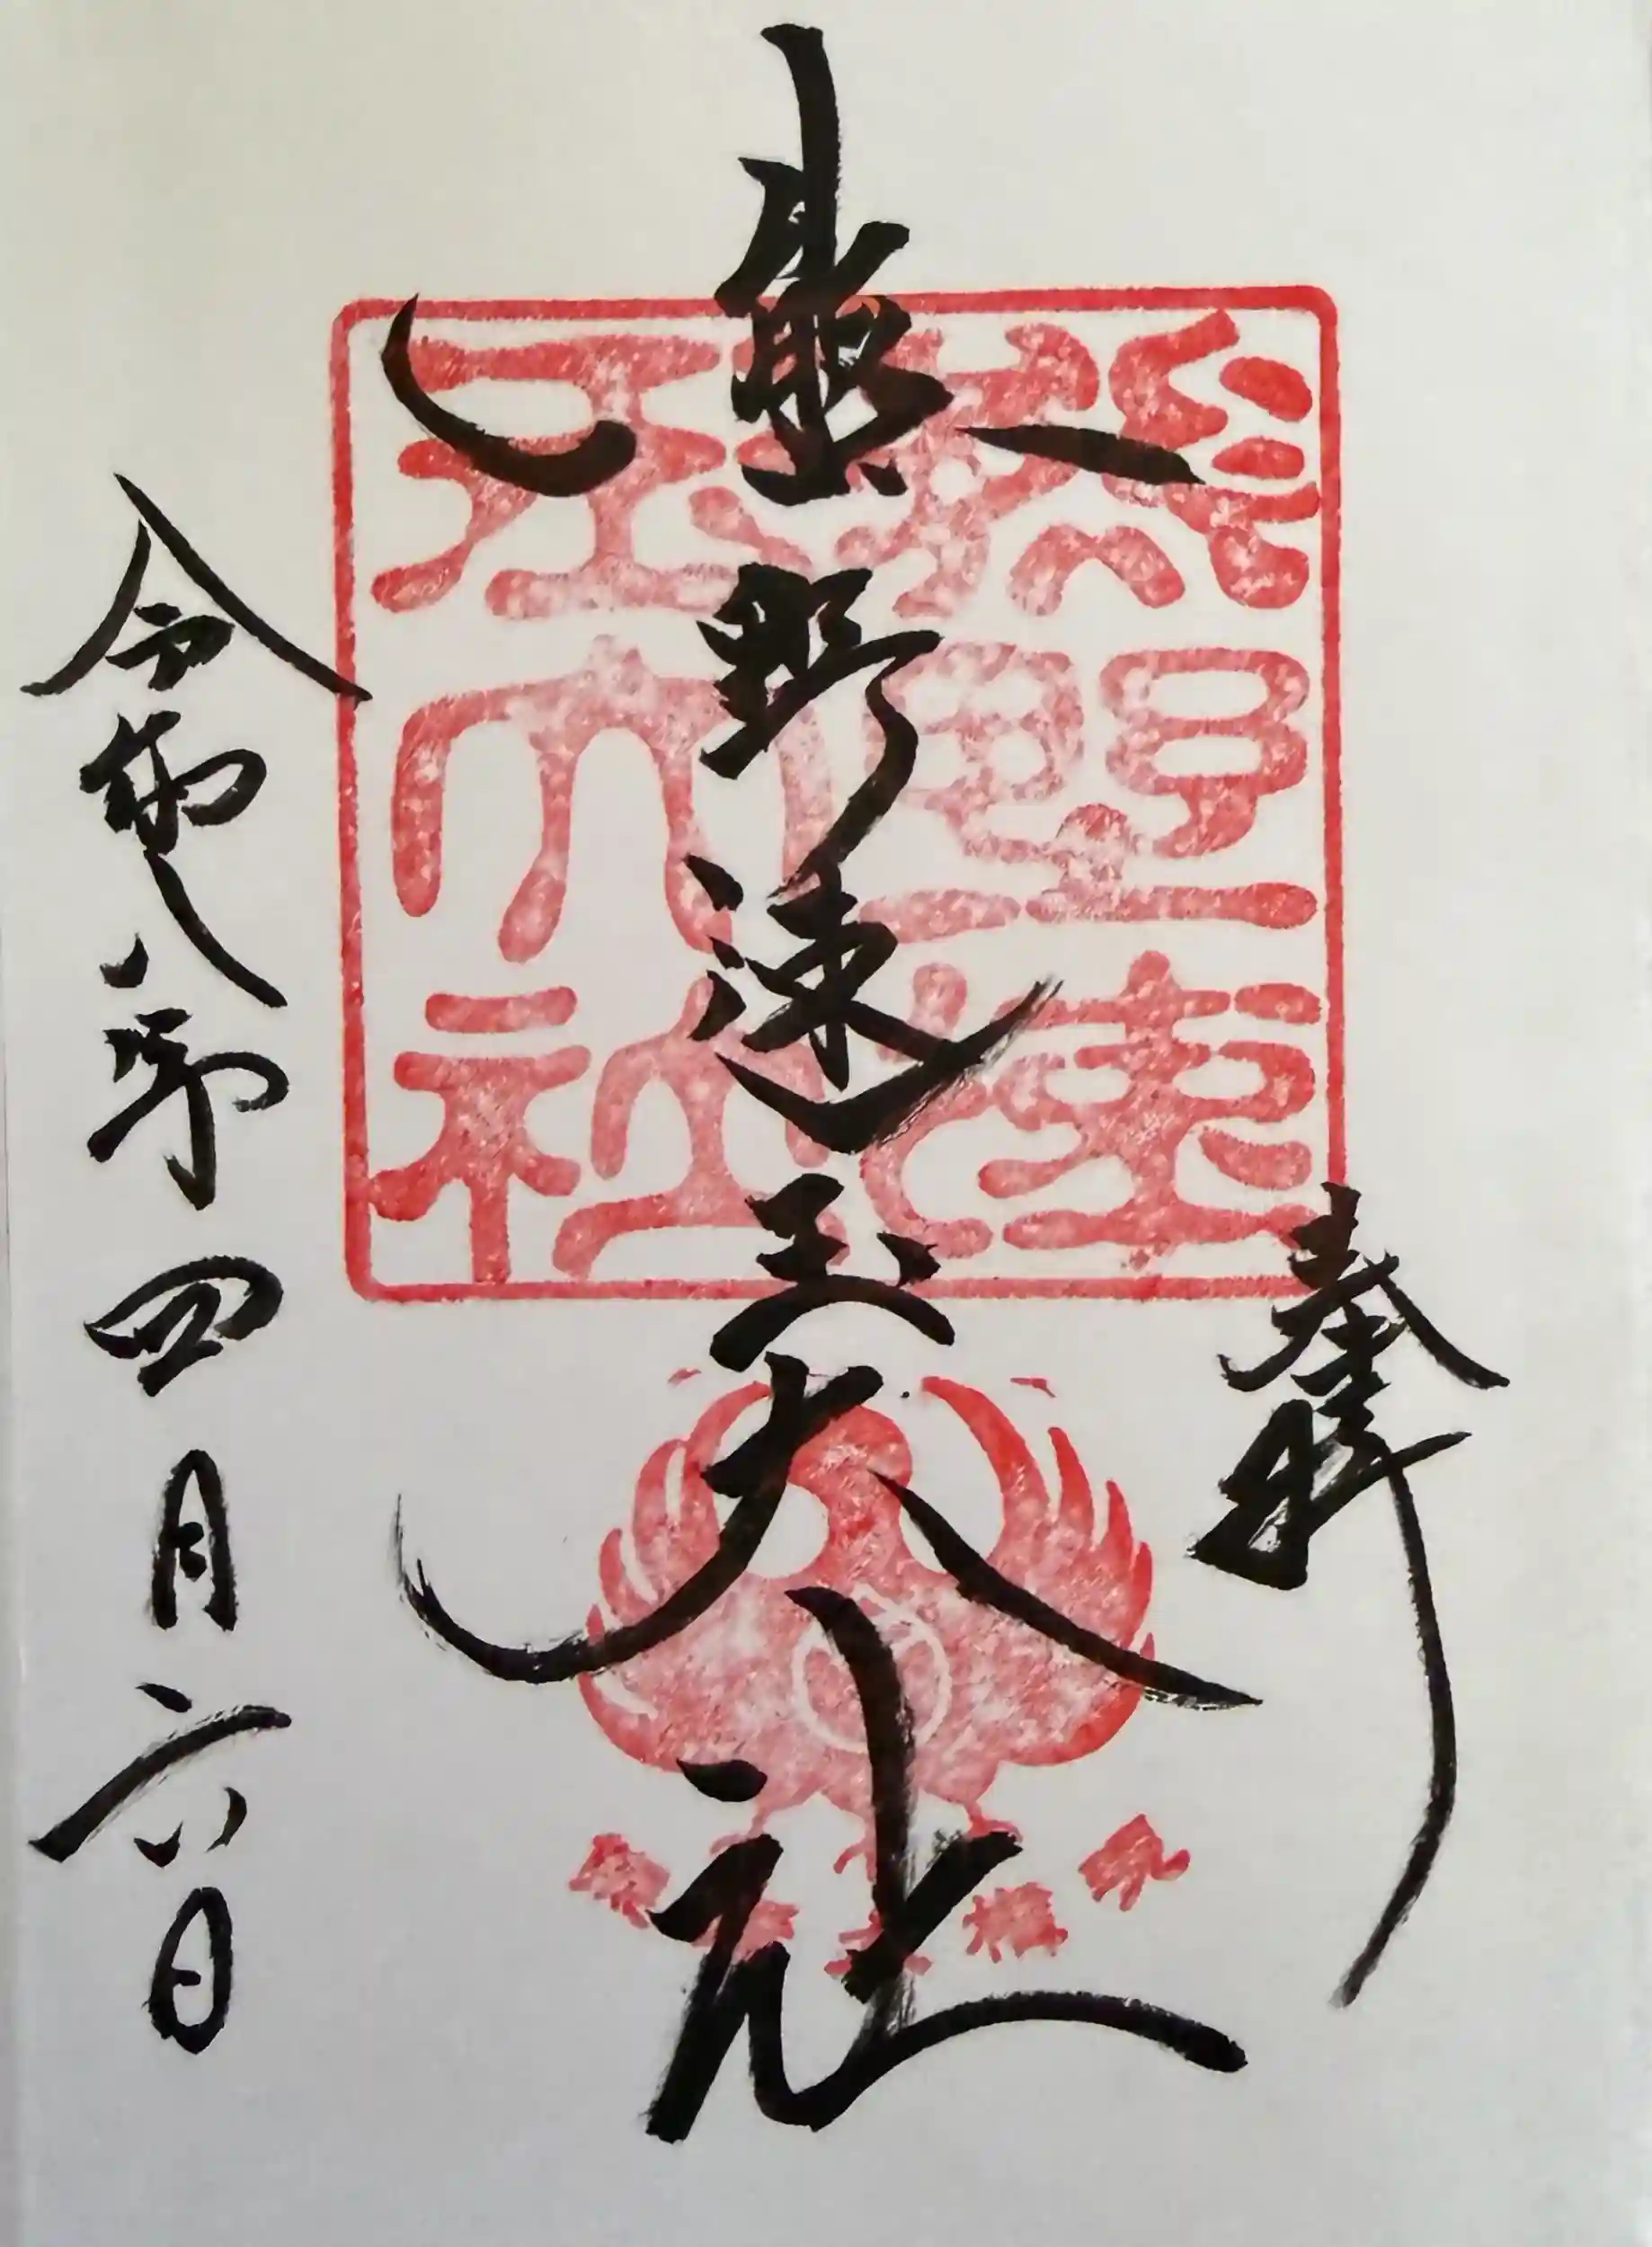 奉拝
熊野速玉大社
令和八年四月六日
熊野速
玉大社